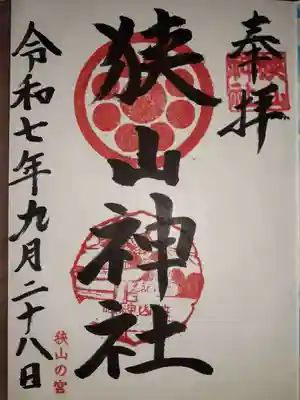 奉拝
狭山神社
令和七年九月二十八日
狭山の宮